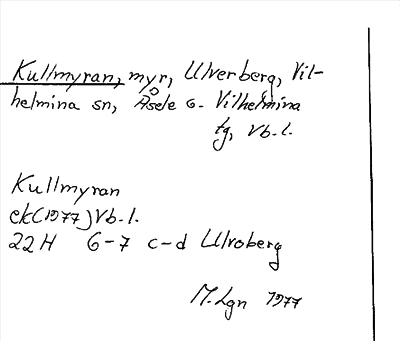 Kullmyran, myr, Ulverberg, Vil-
helmina sn, Åsele o. Vilhelmina
tg, Vb. l.
Kullmyran
ek(1977) Vb. l.
22H 6-7 c-d Ulvoberg
M. Lgn 1977